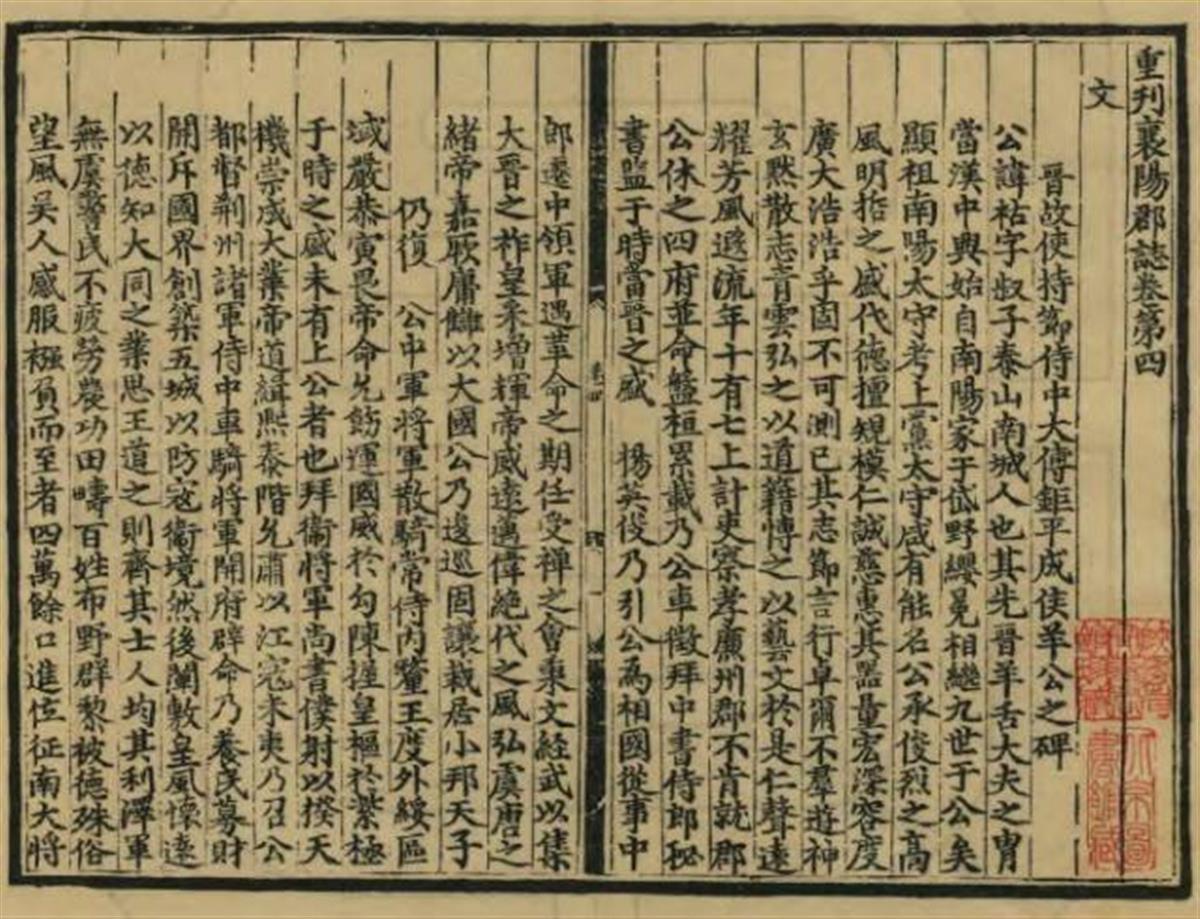 重刊襄陽郡誌卷第四
文
晉故使持節侍中大傅鉅平成侯羊公之碑
公諱祜字叔子泰山南城人也其先晉羊舌大夫之冑
當漢中興始自南陽家于岱野纓冕相繼九世于公矣
顯祖南陽太守考上黨太守咸有能名公承俊烈之高
風明哲之盛代德擅規模仁誠慈惠其器量宏深容度
廣大浩浩乎固不可測已其志節言行卓爾不羣遊神
玄黙散志青雲弘之以道籍博之以藝文於是仁聲遠
耀芳風遐流年十有七上計吏察孝廉州郡不肯就郡
公休之四府並命盤桓累載乃公車徵拜中書侍郎秘
書監于時當晉之盛 楊英俊乃引公為相國從事中
郎遷中領軍遇革命之期任受禪之會秉文經武以集
大晉之祚皇采增輝帝威遠邁偉絕代之風弘虞唐之
緒帝嘉厥庸讎以大國公乃逡巡固讓裁居小邦天子
仍復 公中軍將軍散騎常侍內釐王度外綏區
域嚴恭寅畏帝命允飭運國威於勾陳握皇樞於紫極
于時之盛未有上公者也拜衞將軍尚書僕射以揆天
機崇成大業帝道緝熙泰階允肅以江寇未夷乃召公
都督荊州諸軍侍中車騎將軍開府辟命乃養民募財
開斥國界創築五城以防寇衞境然後闡敷皇風懷遠
以德知大同之業思王道之則齊其士人均其利澤軍
無虞警民不疲勞農功田疇百姓布野群黎被德殊俗
望風吳人感服襁負而至者四萬餘口進位征南大將